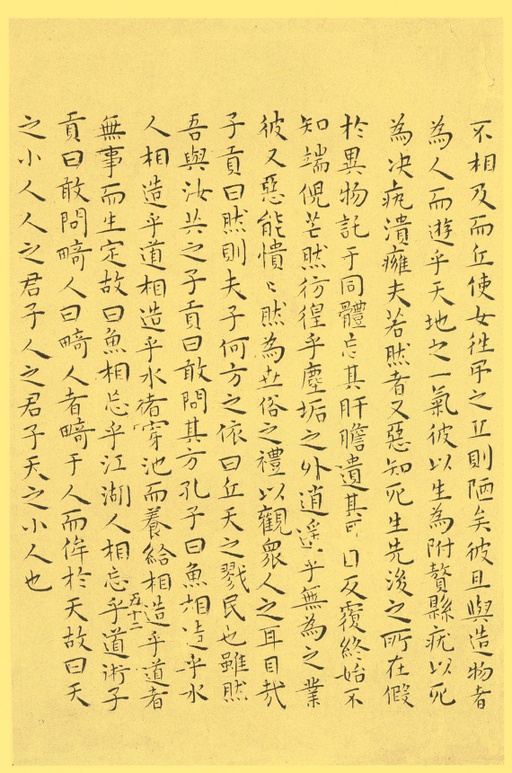 不相及而丘使女往弔之丘則陋矣彼且與造物者
為人而遊乎天地之一氣彼以生為附贅縣疣以死
為決疣潰癰夫若然者又惡知死生先後之所在假
於異物託于同體忘其肝膽遺其耳目反覆終始不
知端倪芒然彷徨乎塵垢之外逍遥乎無為之業
彼又惡能憒〻然為世俗之禮以觀衆人之耳目哉
子貢曰然則夫子何方之依曰丘天之戮民也雖然
吾與汝共之子貢曰敢問其方孔子曰魚相造乎水
人相造乎道相造乎水者穿池而養給相造乎道者
無事而生定故曰魚相忘乎江湖人相忘乎道術子
貢曰敢問畸人曰畸人者畸于人而侔於天故曰天
之小人人之君子人之君子天之小人也